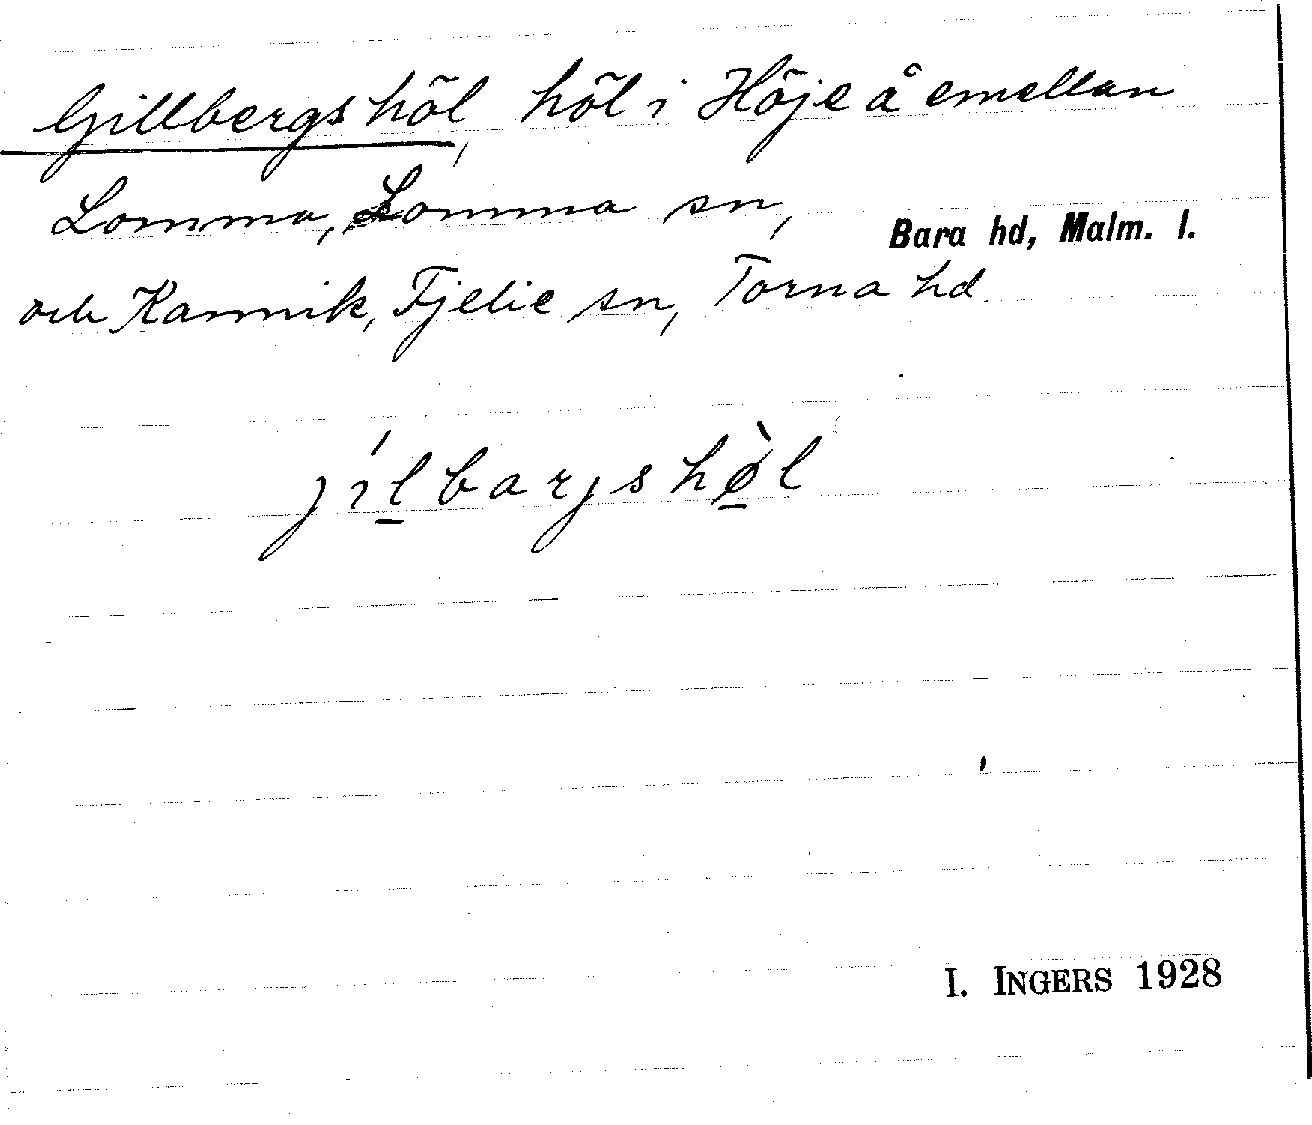 Gillbergshöl, höl i Höje å emellan
Lomma, Lomma sn, Bara hd, Malm. l.
och Kannik, Fjelie sn, Torna hd.
jílbarjshø̀l
I. INGERS 1928